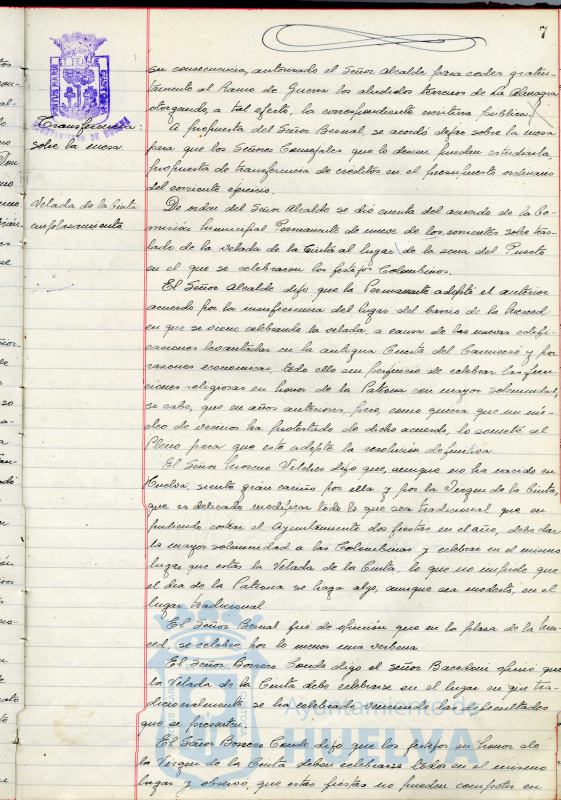 7
su consecuencia, autorizado el Señor Alcalde para ceder gratui-
tamente al Ramo de Guerra los aludidos terrenos de La Almagra
otorgando, a tal efecto, la correspondiente escritura pública.
Transferencia:
sobre la mesa.
A propuesta del Señor Bernal, se acordó dejar sobre la mesa
para que los Señores Concejales que lo deseen puedan estudiarla,
propuesta de transferencia de créditos en el presupuesto ordinario
del corriente ejercicio.
Velada de la Cinta
emplazamiento
De orden del Señor Alcalde se dió cuenta del acuerdo de la Co-
misión Municipal Permanente de nueve de los corrientes sobre tras-
lado de la velada de la Cinta al lugar de la zona del Puerto
en el que se celebraron los festejos Colombinos.
El Señor Alcalde dijo que la Permanente adoptó el anterior
acuerdo por la insuficiencia del lugar del barrio de la Merced
en que se viene celebrando la velada, a causa de las nuevas edifi-
caciones levantadas en la antigua Cuesta del Carnicero y por
razones económicas, todo ello sin perjuicio de celebrar las fun-
ciones religiosas en honor de la Patrona con mayor solemnidad,
si cabe, que en años anteriores, pero, como quiera que un nú-
cleo de vecinos ha protestado de dicho acuerdo, lo somete al
Pleno para que este adopte la resolución definitiva.
El Señor Moreno Vilches dijo que, aunque no ha nacido en
Huelva, siente gran cariño por ella y por la Virgen de la Cinta,
que es delicado modificar todo lo que sea tradicional, que no
pudiendo costear el Ayuntamiento dos fiestas en el año, debe dar
la mayor solemnidad a las Colombinas y celebrar en el mismo
lugar que estas la Velada de la Cinta, lo que no impide que
el día de la Patrona se haga algo, aunque sea modesto, en el
lugar tradicional.
El Señor Bernal fué de opinión que en la plaza de la Mer-
ced, se celebre, por lo menos una verbena.
El Señor Borrero Conde digo el señor opinó que
la Velada de la Cinta debe celebrarse en el lugar en que tra-
dicionalmente se ha celebrado venciendo las dificultades
que se presenten.
El Señor Borrero Conde dijo que los festejos en honor de
la Virgen de la Cinta deben celebrarse todos en el mismo
lugar y observó, que estas fiestas no pueden competir en
Ayuntamiento de
HUELVA